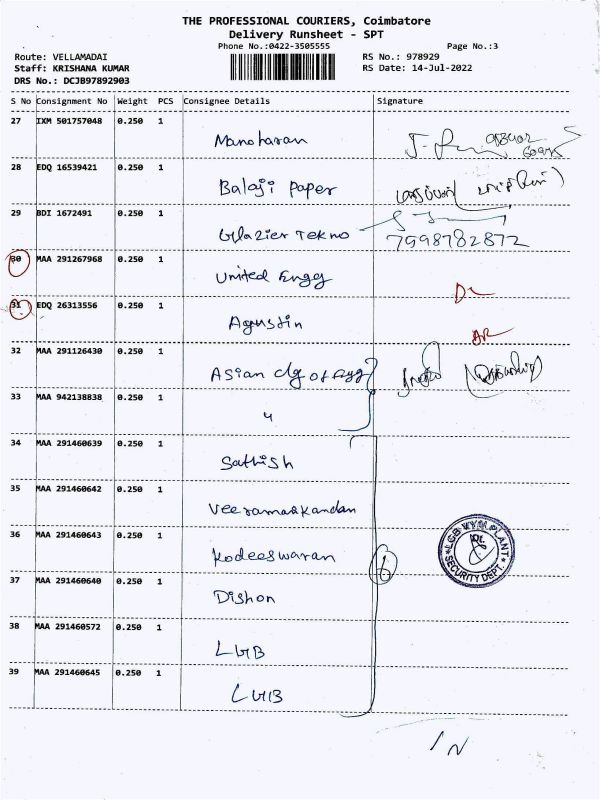 THE PROFESSIONAL COURIERS, Coimbatore
Delivery Runsheet - SPT
Phone No.:0422-3505555 Page No.:3
Route: VELLAMADAI RS No.: 978929
Staff: KRISHANA KUMAR RS Date: 14-Jul-2022
DRS No.: DCJB97892903
S No Consignment No Weight PCS Consignee Details Signature
27 IXM 501757048 0.250 1
Manoharan
28 EDQ 16539421 0.250 1
Balaji Paper
29 BDI 1672491 0.250 1
Glazier Tekno 7998782872
30 MAA 291267968 0.250 1
United Engg
31 EDQ 26313556 0.250 1
Agustin
32 MAA 291126430 0.250 1
Asian clg of Engg
33 MAA 942138838 0.250 1
"
34 MAA 291460639 0.250 1
Sathish
35 MAA 291460642 0.250 1
Veeramaskandan
36 MAA 291460643 0.250 1
Kodeeswaran 6
LGB VYM PLANT
SECURITY DEPT.
37 MAA 291460640 0.250 1
Dishon
38 MAA 291460572 0.250 1
LGB
39 MAA 291460645 0.250 1
LGB